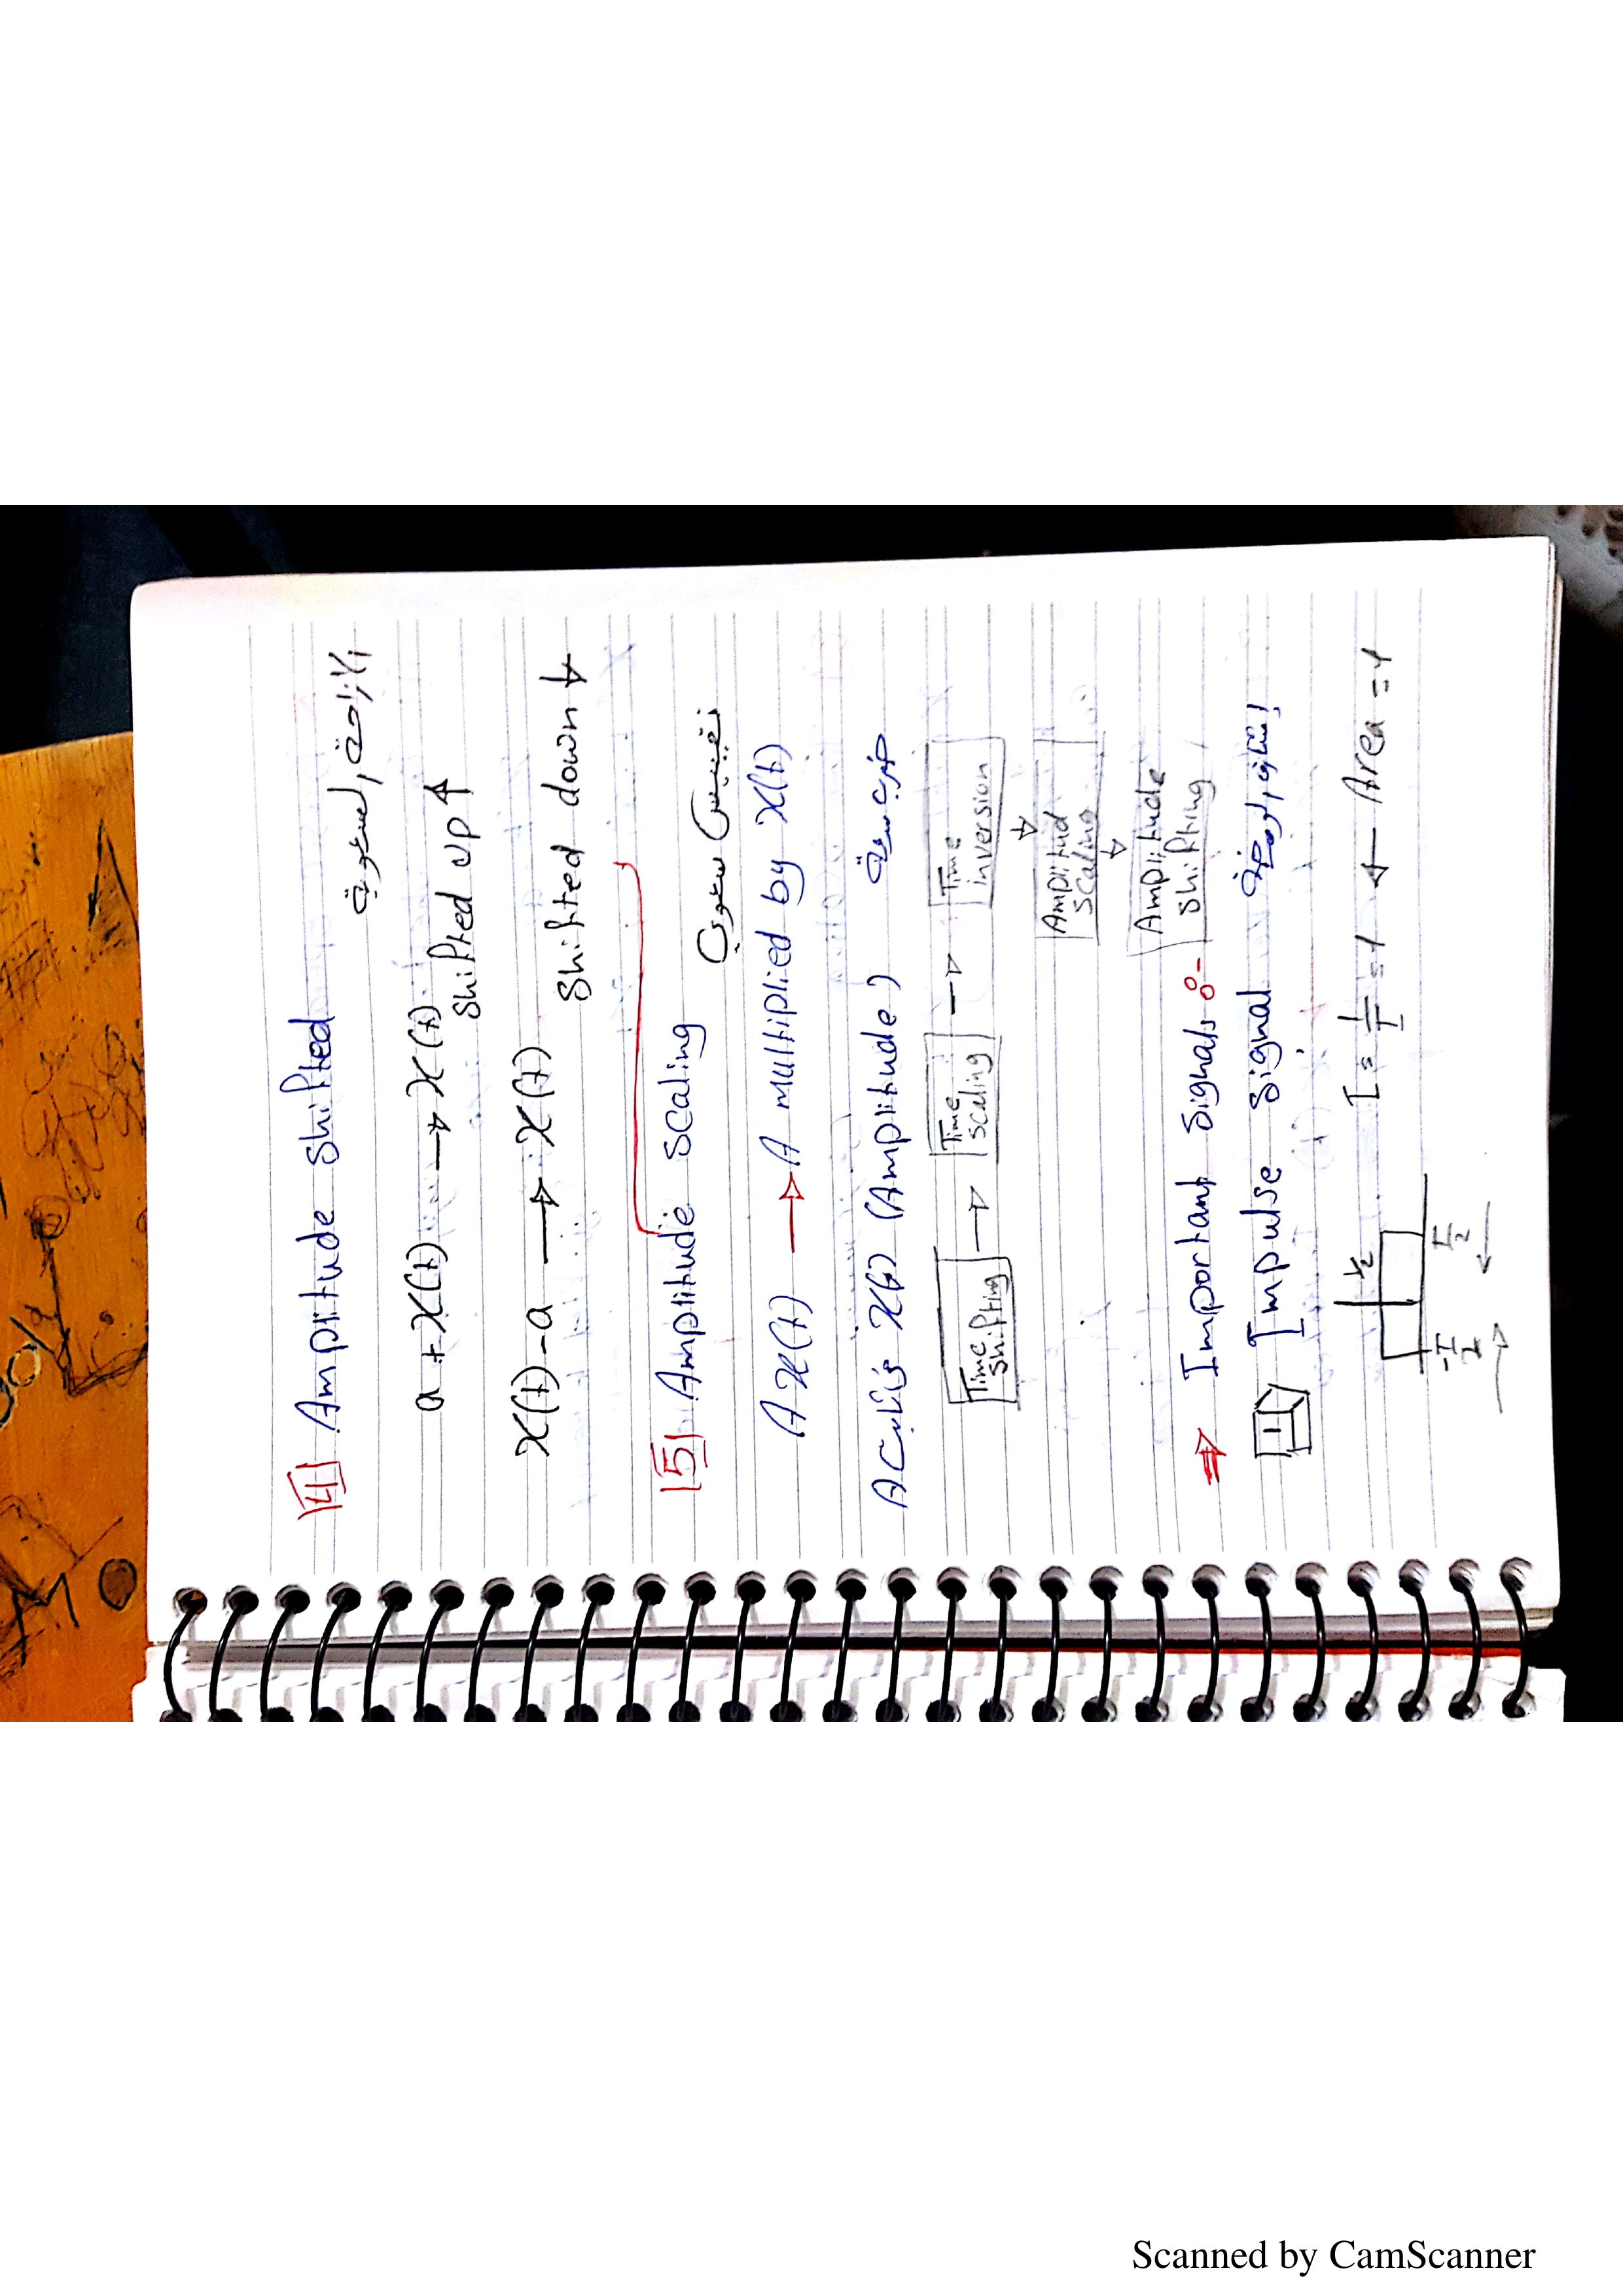 4 Amplitude Shifted
الإزاحة السعوية
a + x(t) → x(t)
Shifted up ↑
x(t) - a → x(t)
Shifted down ↓
5 Amplitude scaling
A x(t) → A multiplied by x(t)
x(t) (Amplitude) ضرب سعة
Time shifting → Time scaling → Time inversion
↓
Amplitud scaling
↓
Amplitude shifting
⇒ Important signals:-
1 Impulse signal
= 1 ← Area = 1
-T/2 T/2
Scanned by CamScanner